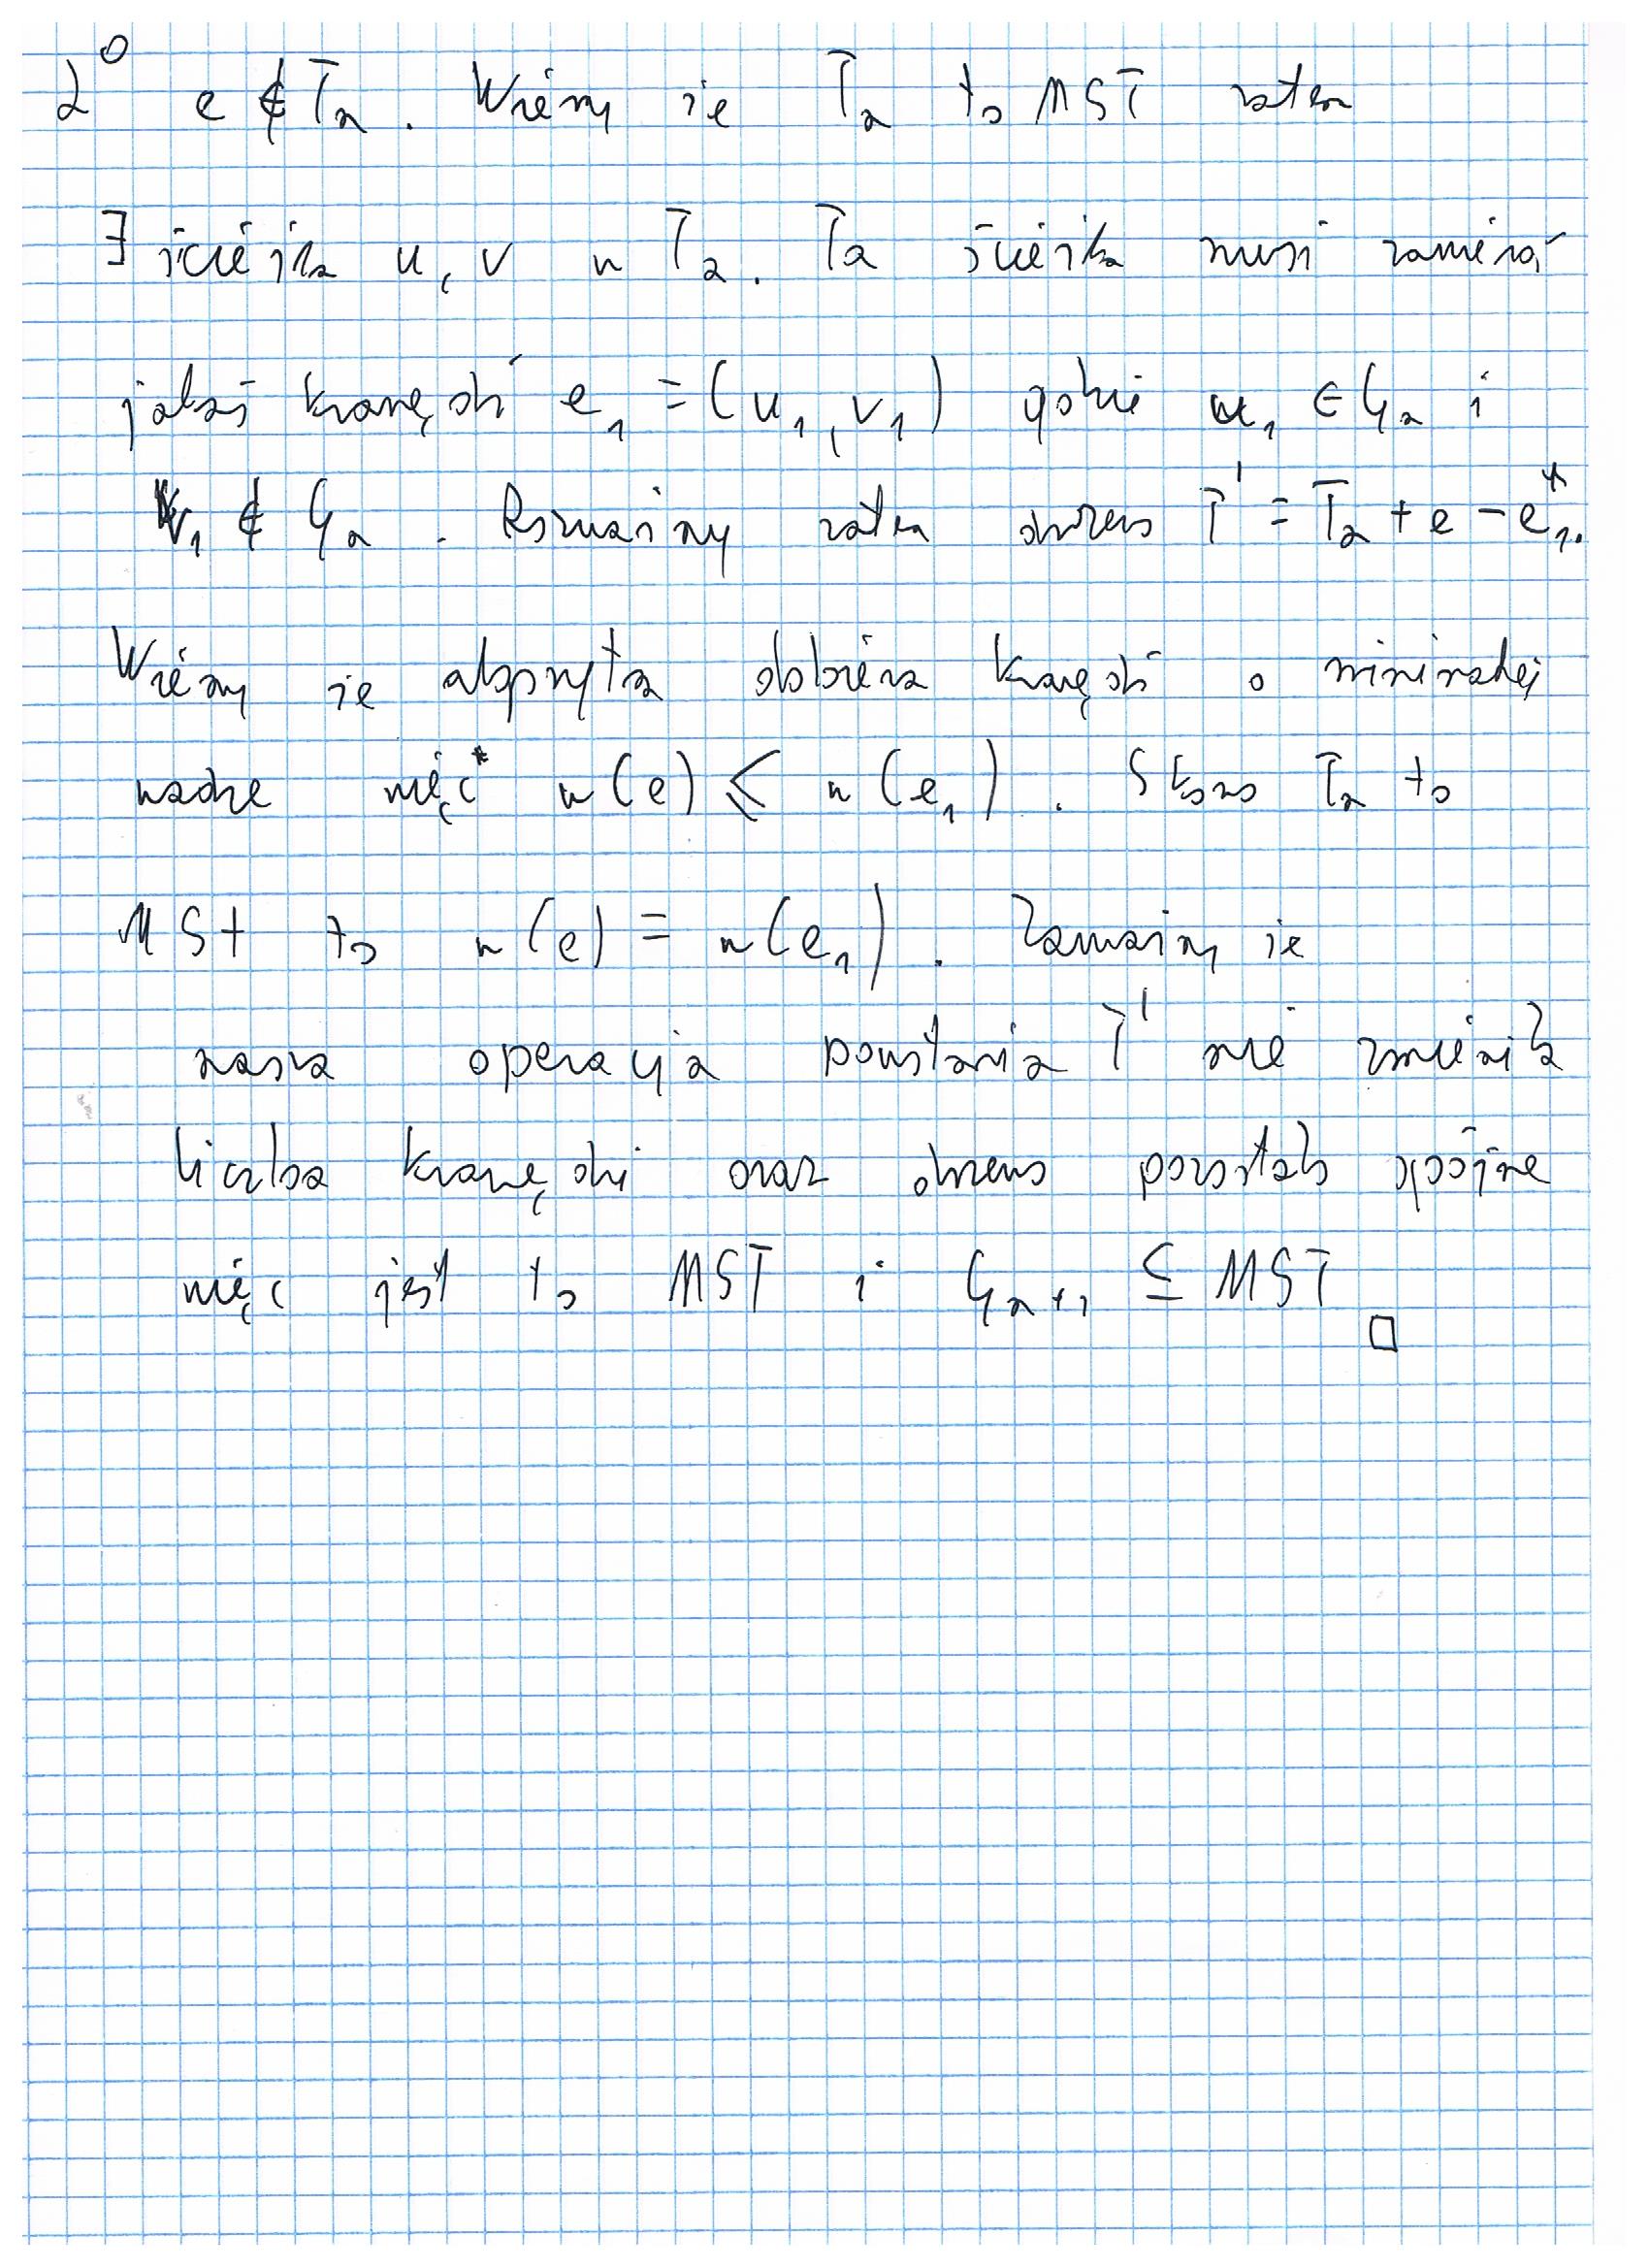 2° e ∉ T₂. Wiemy że T₂ to MST zatem
∃ ścieżka u, v w T₂. Ta ścieżka musi zawierać
jakąś krawędź e₁ = (u₁, v₁) gdzie u₁ ∈ G₂ i
v₁ ∉ G₂. Rozważmy zatem drzewo T' = T₂ + e - e₁*.
Wiemy że algorytm dobiera krawędź o minimalnej
wadze więc* w(e) ≤ w(e₁). Skoro T₂ to
MST to w(e) = w(e₁). Zauważmy że
nasza operacja powstania T' nie zmieniła
liczba krawędzi oraz drzewo pozostało spójne
więc jest to MST i G₂₊₁ ⊆ MST □